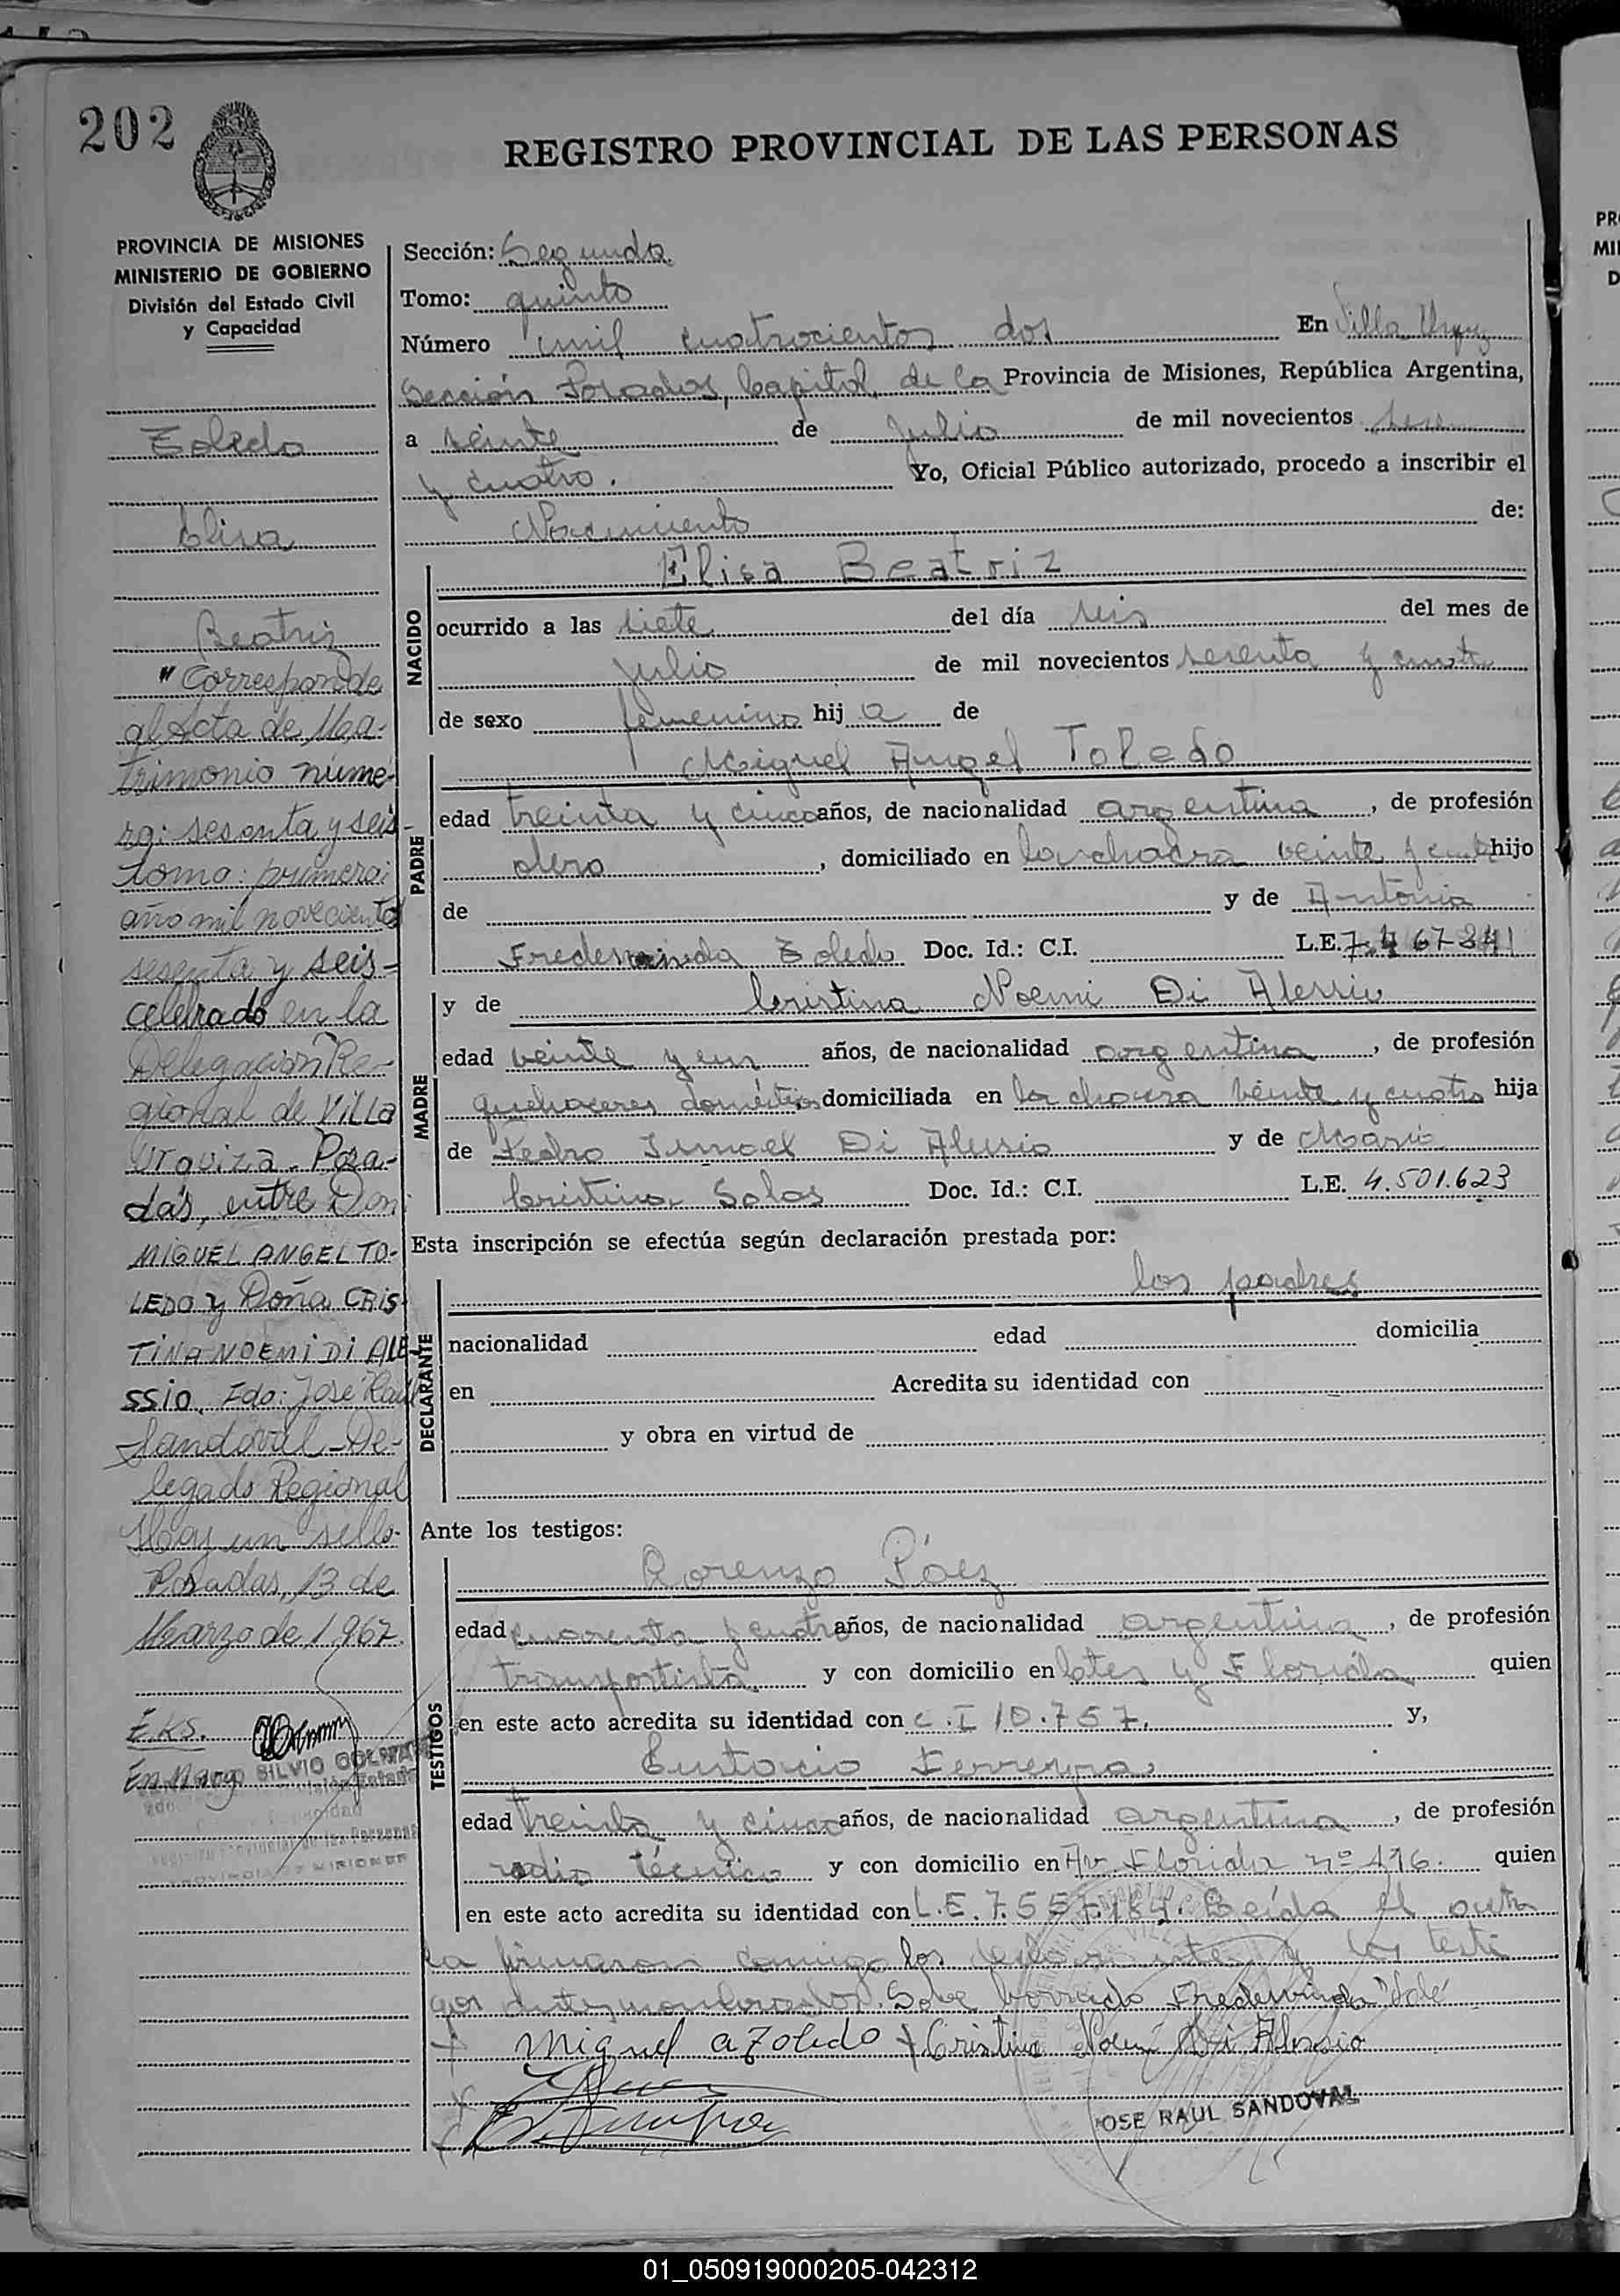 202
REGISTRO PROVINCIAL DE LAS PERSONAS
PROVINCIA DE MISIONES
MINISTERIO DE GOBIERNO
División del Estado Civil
y Capacidad
Toledo
Elisa
Beatriz
"Corresponde
al Acta de Ma-
trimonio núme-
ro: sesenta y seis-
tomo: primero;
año mil novecientos
sesenta y seis-
celebrado en la
Delegación Re-
gional de Villa
Urquiza. Posa-
das, entre Don
MIGUEL ANGEL TO-
LEDO y Doña CRIS-
TINA NOEMI DI ALE-
SSIO. Fdo: José Raúl
Sandoval - De-
legado Regional
Hay un sello-
Posadas, 13 de
Marzo de 1.967.
E.K.S.
SILVIO
Registro Provincial de las Personas
PROVINCIA DE MISIONES
Sección: Segunda
Tomo: quinto
Número mil cuatrocientos dos En Villa Urquiza
Sección Posadas, Capital de la Provincia de Misiones, República Argentina,
a veinte de julio de mil novecientos
y cuatro. Yo, Oficial Público autorizado, procedo a inscribir el
Nacimiento de:
NACIDO
Elisa Beatriz
ocurrido a las siete del día seis del mes de
julio de mil novecientos sesenta y cuatro
de sexo femenino hija de
PADRE
Miguel Angel Toledo
edad treinta y cinco años, de nacionalidad argentina, de profesión
olero, domiciliado en la chacra veinte y hijo
de y de Antonia
Fredesvinda Toledo Doc. Id.: C.I. L.E. 7.467-841
MADRE
y de Cristina Noemi Di Alessio
edad veinte y un años, de nacionalidad argentina, de profesión
quehaceres domésticos domiciliada en la chacra veinte y cuatro hija
de Pedro Ismael Di Alessio y de María
Cristina Salas Doc. Id.: C.I. L.E. 4.501.623
Esta inscripción se efectúa según declaración prestada por:
DECLARANTE
los padres
nacionalidad edad domicilia
en Acredita su identidad con
y obra en virtud de
Ante los testigos:
TESTIGOS
Lorenzo Páez
edad cuarenta y cuatro años, de nacionalidad argentina, de profesión
transportista y con domicilio en y Florida quien
en este acto acredita su identidad con C.I 10.757. y,
Eustacio Ferreyra
edad treinta y cinco años, de nacionalidad argentina, de profesión
radio técnico y con domicilio en Av. Florida nº 496. quien
en este acto acredita su identidad con L.E. Leída el acta
la firmaron conmigo los declarantes y los testi
gos antes nombrados. Sobre borrado Fredesvinda "Vale"
Miguel A Toledo Cristina Noemí Di Alessio
JOSE RAUL SANDOVAL
01_050919000205-042312